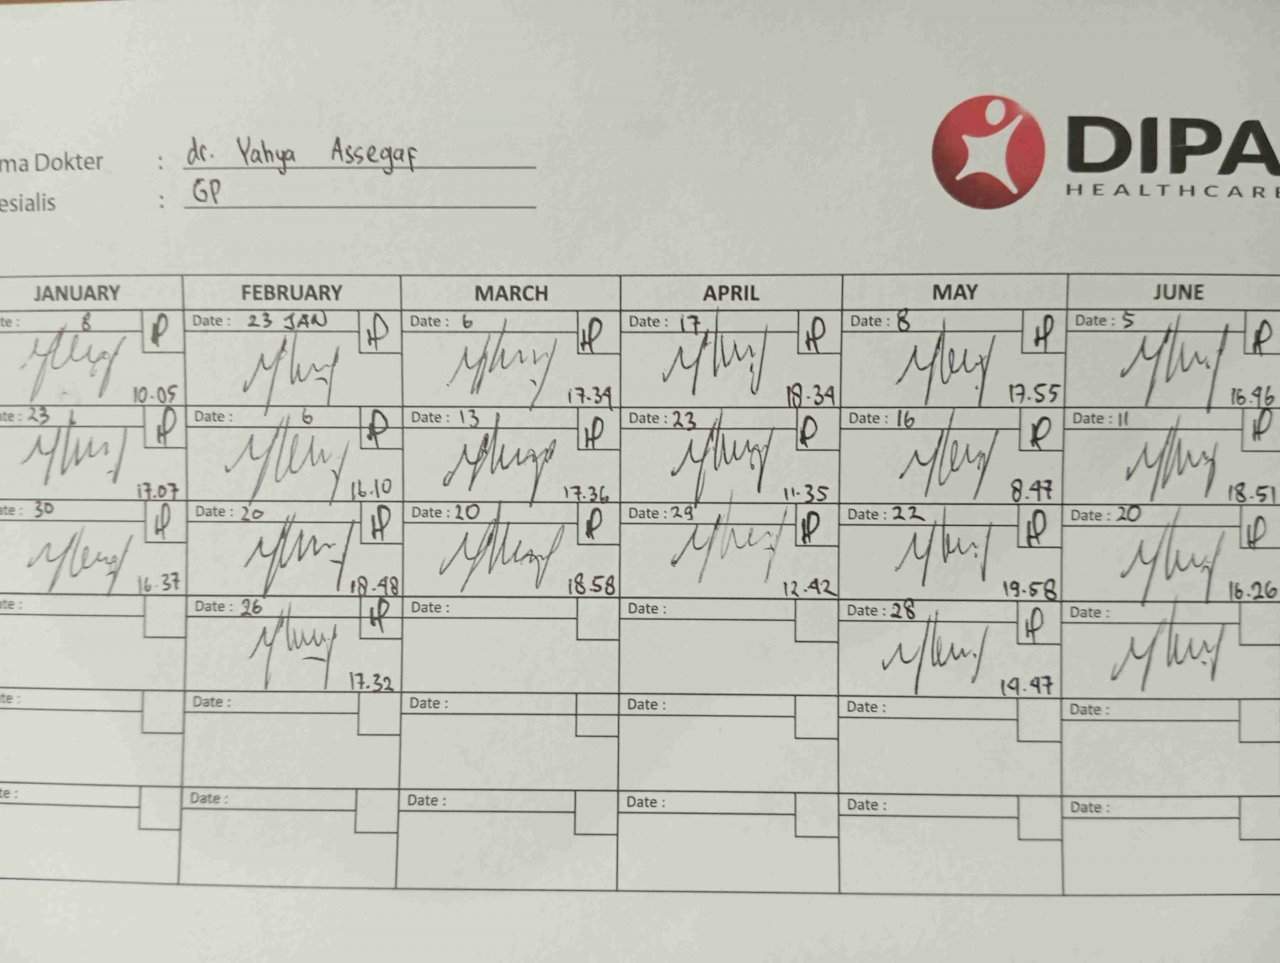 ma Dokter : dr. Yahya Assegaf
esialis : GP
DIPA
HEALTHCARE
JANUARY FEBRUARY MARCH APRIL MAY JUNE
te: 8 Date: 23 JAN Date: 6 Date: 17 Date: 8 Date: 5
10.05 17.34 18.34 17.55 16.46
te: 23 Date: 6 Date: 13 Date: 23 Date: 16 Date: 11
17.07 16.10 17.36 11.35 8.47 18.51
te: 30 Date: 20 Date: 20 Date: 29 Date: 22 Date: 20
16.37 18.48 18.58 12.42 19.58 16.26
te: Date: 26 Date: Date: Date: 28 Date:
17.32 19.47
te: Date: Date: Date: Date: Date:
te: Date: Date: Date: Date: Date: